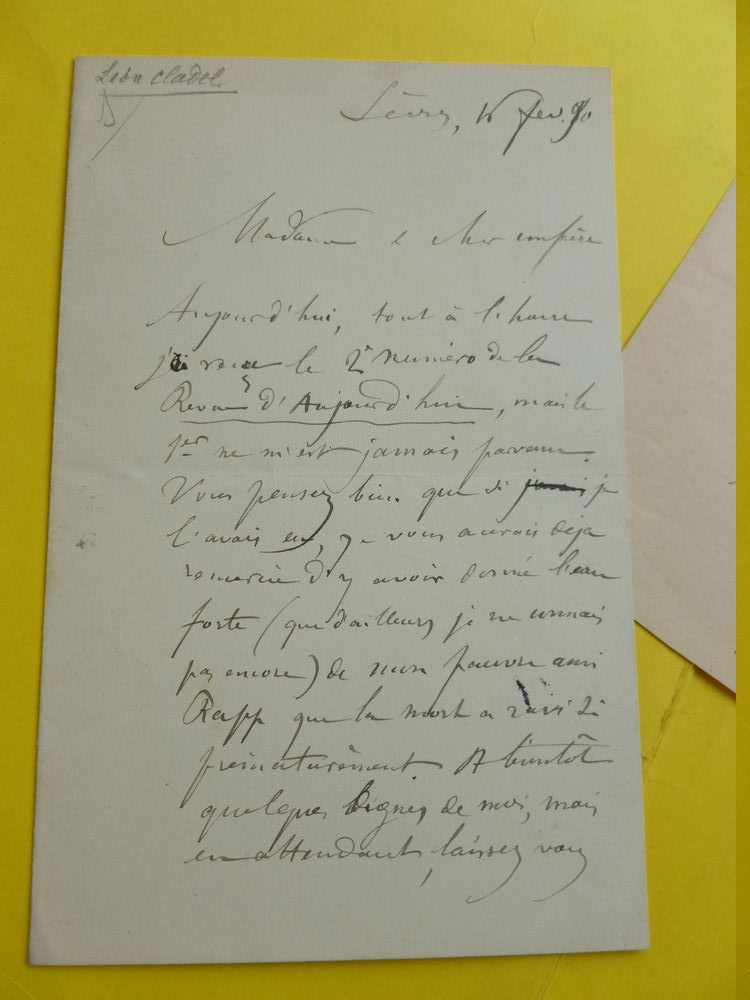 Léon Cladel
Sèvres, 16 fev. 90
Madame & cher confrère
Aujourd'hui, tout à l'heure
j'ai reçu le 2e numéro de la
Revue d'Aujourd'hui, mais le
1er ne m'est jamais parvenu.
Vous pensez bien que si jamais je
l'avais eu, je vous aurais déja
remercié d'y avoir donné l'eau
forte (que d'ailleurs je ne connais
pas encore) de mon pauvre ami
Rapp que la mort a ravi si
prématurément. A bientôt
quelques lignes de moi, mais
en attendant, laissez vous